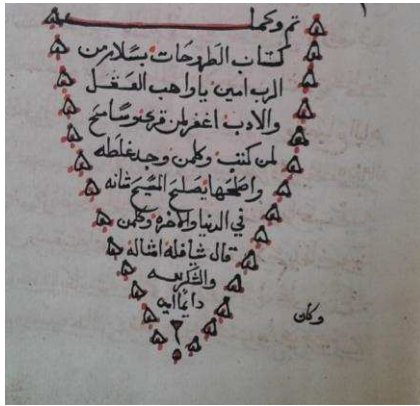 تم وكمل
كتاب الطرحات بسلام من
الرب امين ياواهب العقل
والادب اغفر لمن قرى وسامح
لمن كتب وكلمن وجد غلطه
واصلحها يصلح المسيح شانه
في الدنيا والاخره وكلمن
قال شيا فله امثاله
والشكر لله
دايما
وكان